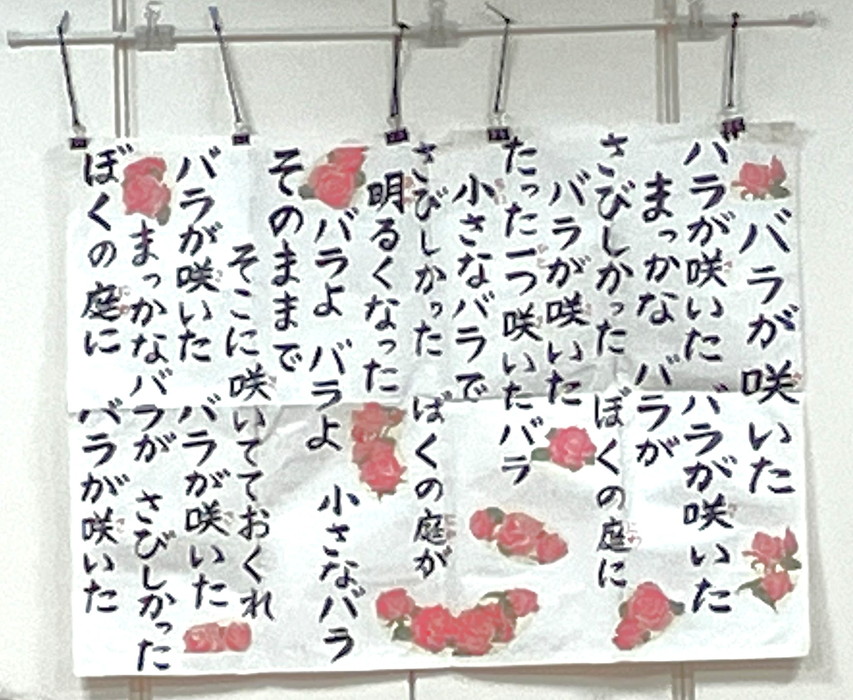 バラが咲いた
バラが咲いた バラが咲いた
まっかな バラが
さびしかった ぼくの庭に
バラが咲いた
たった一つ咲いたバラ
小さなバラで
さびしかった ぼくの庭が
明るくなった
バラよ バラよ 小さなバラ
そのままで
そこに咲いてておくれ
バラが咲いた バラが咲いた
まっかなバラが さびしかった
ぼくの庭に バラが咲いた